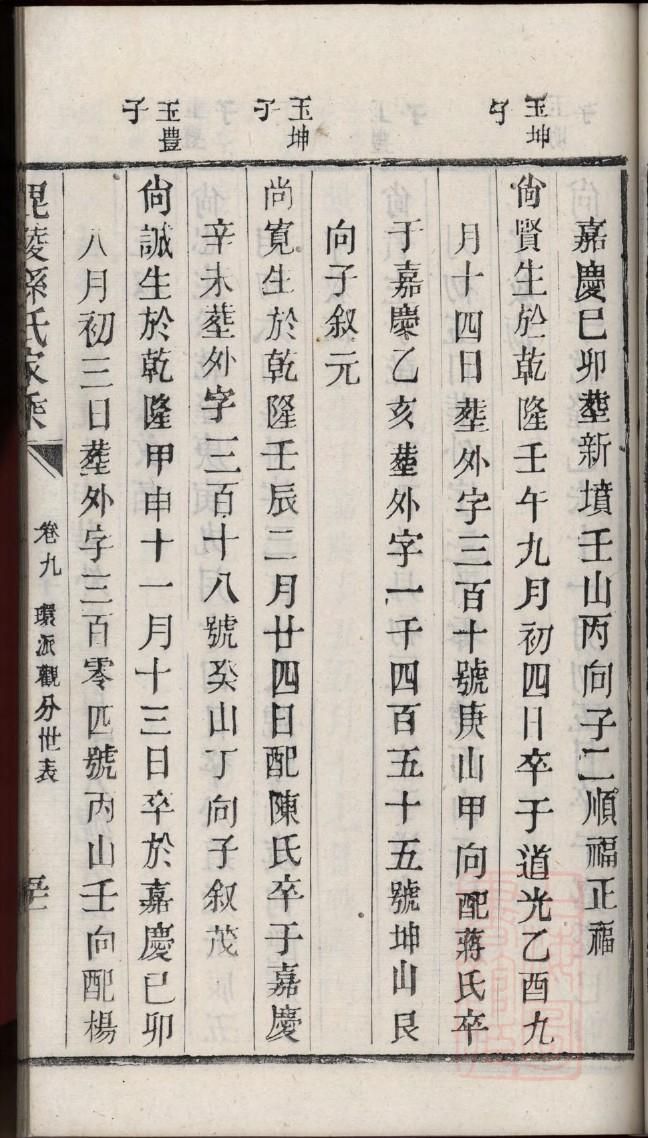 嘉慶己卯塟新墳壬山丙向子二順福正福
玉坤
子
尙賢生於乾隆壬午九月初四日卒于道光乙酉九
月十四日塟外字三百十號庚山甲向配蔣氏卒
于嘉慶乙亥塟外字一千四百五十五號坤山艮
向子叙元
玉坤
子
尚寬生於乾隆壬辰二月廿四日配陳氏卒于嘉慶
辛未塟外字三百十八號癸山丁向子叙茂
玉豊
子
尙誠生於乾隆甲申十一月十三日卒於嘉慶己卯
八月初三日塟外字三百零四號丙山壬向配楊
毘陵孫氏家乘
卷九 環派觀分世表